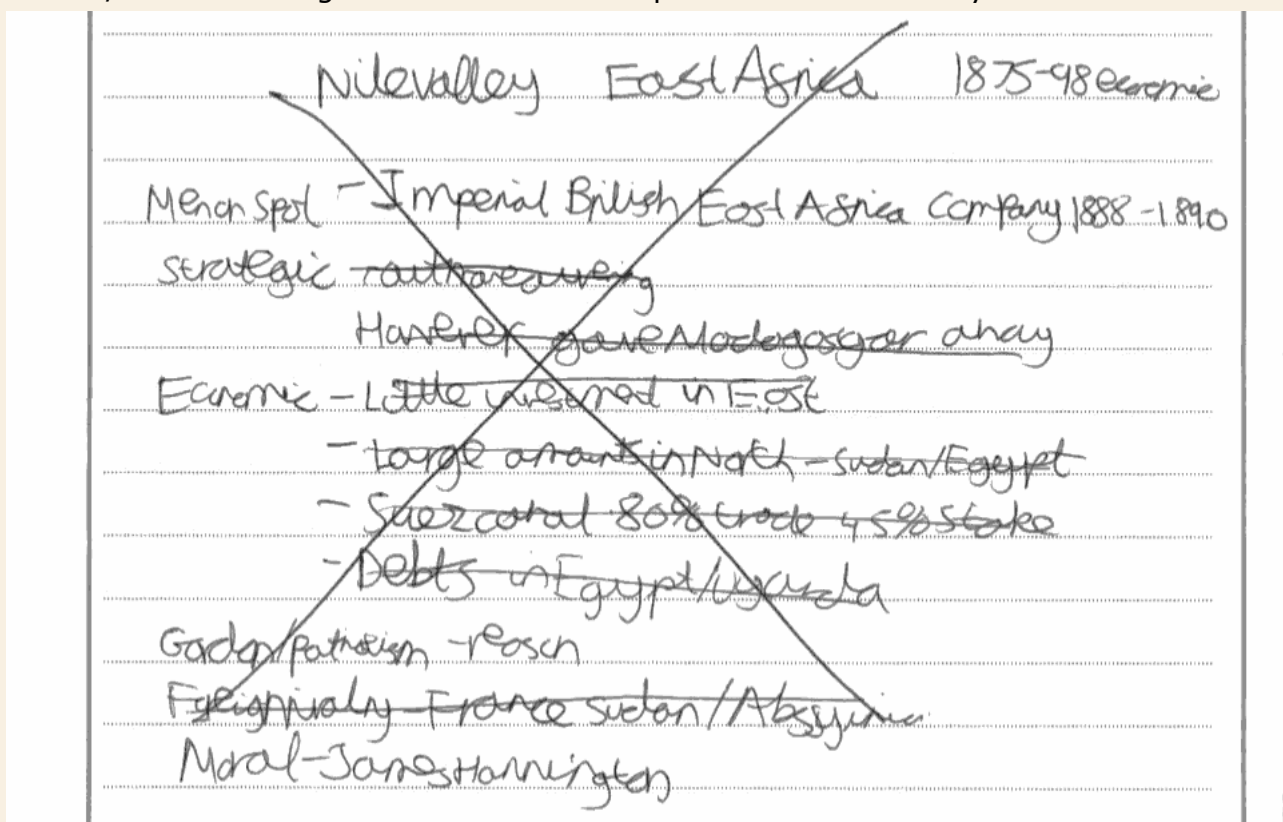 Nile valley East Africa 1875-98 economic
Men on spot - Imperial British East Africa Company 1888-1890
Strategic
However gave Madagasgar away
Economic - Little invested in East
- Large amounts in North - Sudan/Egypt
- Suez canal 80% trade 45% stake
- Debts in Egypt/Uganda
Gordon/patriotism - reason
France Sudan/Abssyinia
Moral - James Hannington